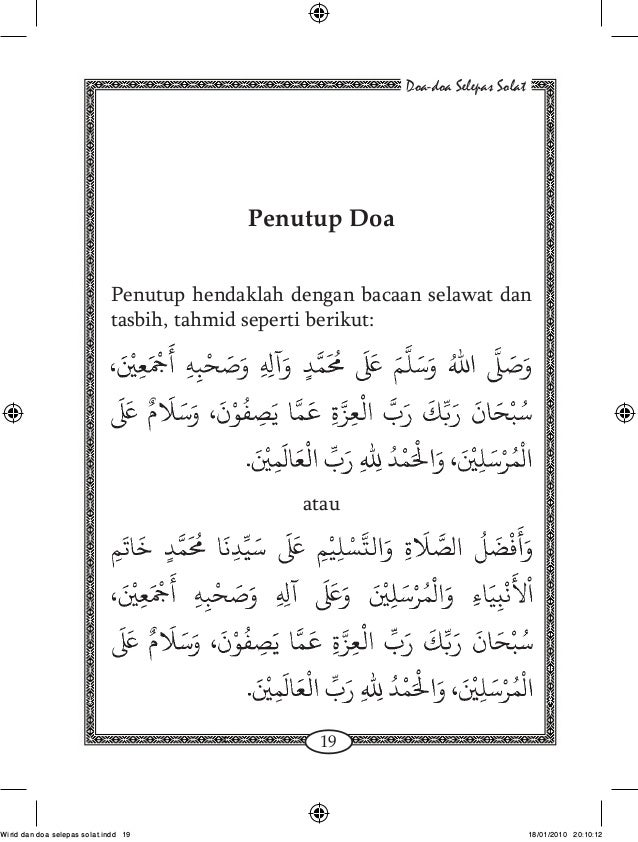 Doa-doa Selepas Solat
Penutup Doa
Penutup hendaklah dengan bacaan selawat dan
tasbih, tahmid seperti berikut:
وَصَلَّى اللهُ وَسَلَّمَ عَلَى مُحَمَّدٍ وَآلِهِ وَصَحْبِهِ أَجْمَعِيْنَ،
سُبْحَانَ رَبِّكَ رَبَّ الْعِزَّةِ عَمَّا يَصِفُوْنَ، وَسَلَامٌ عَلَى
الْمُرْسَلِيْنَ، وَالْحَمْدُ لِلهِ رَبِّ الْعَالَمِيْنَ.
atau
وَأَفْضَلُ الصَّلَاةِ وَالتَّسْلِيْمِ عَلَى سَيِّدِنَا مُحَمَّدٍ خَاتِمِ
الْأَنْبِيَاءِ وَالْمُرْسَلِيْنَ وَعَلَى آلِهِ وَصَحْبِهِ أَجْمَعِيْنَ،
سُبْحَانَ رَبِّكَ رَبِّ الْعِزَّةِ عَمَّا يَصِفُوْنَ، وَسَلَامٌ عَلَى
الْمُرْسَلِيْنَ، وَالْحَمْدُ لِلهِ رَبِّ الْعَالَمِيْنَ.
19
Wirid dan doa selepas solat.indd 19
18/01/2010 20:10:12